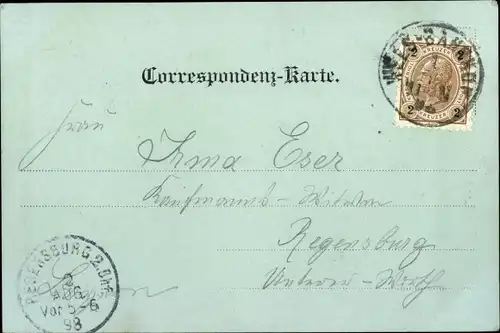 KREUZER
2 2
Correspondenz-Karte.
Frau
Irma Eser
Kaufmanns-Witwe
Regensburg
Unterer-Wöth
REGENSBURG 2. Ohf.
2
AUG.
Vor 5-6
98